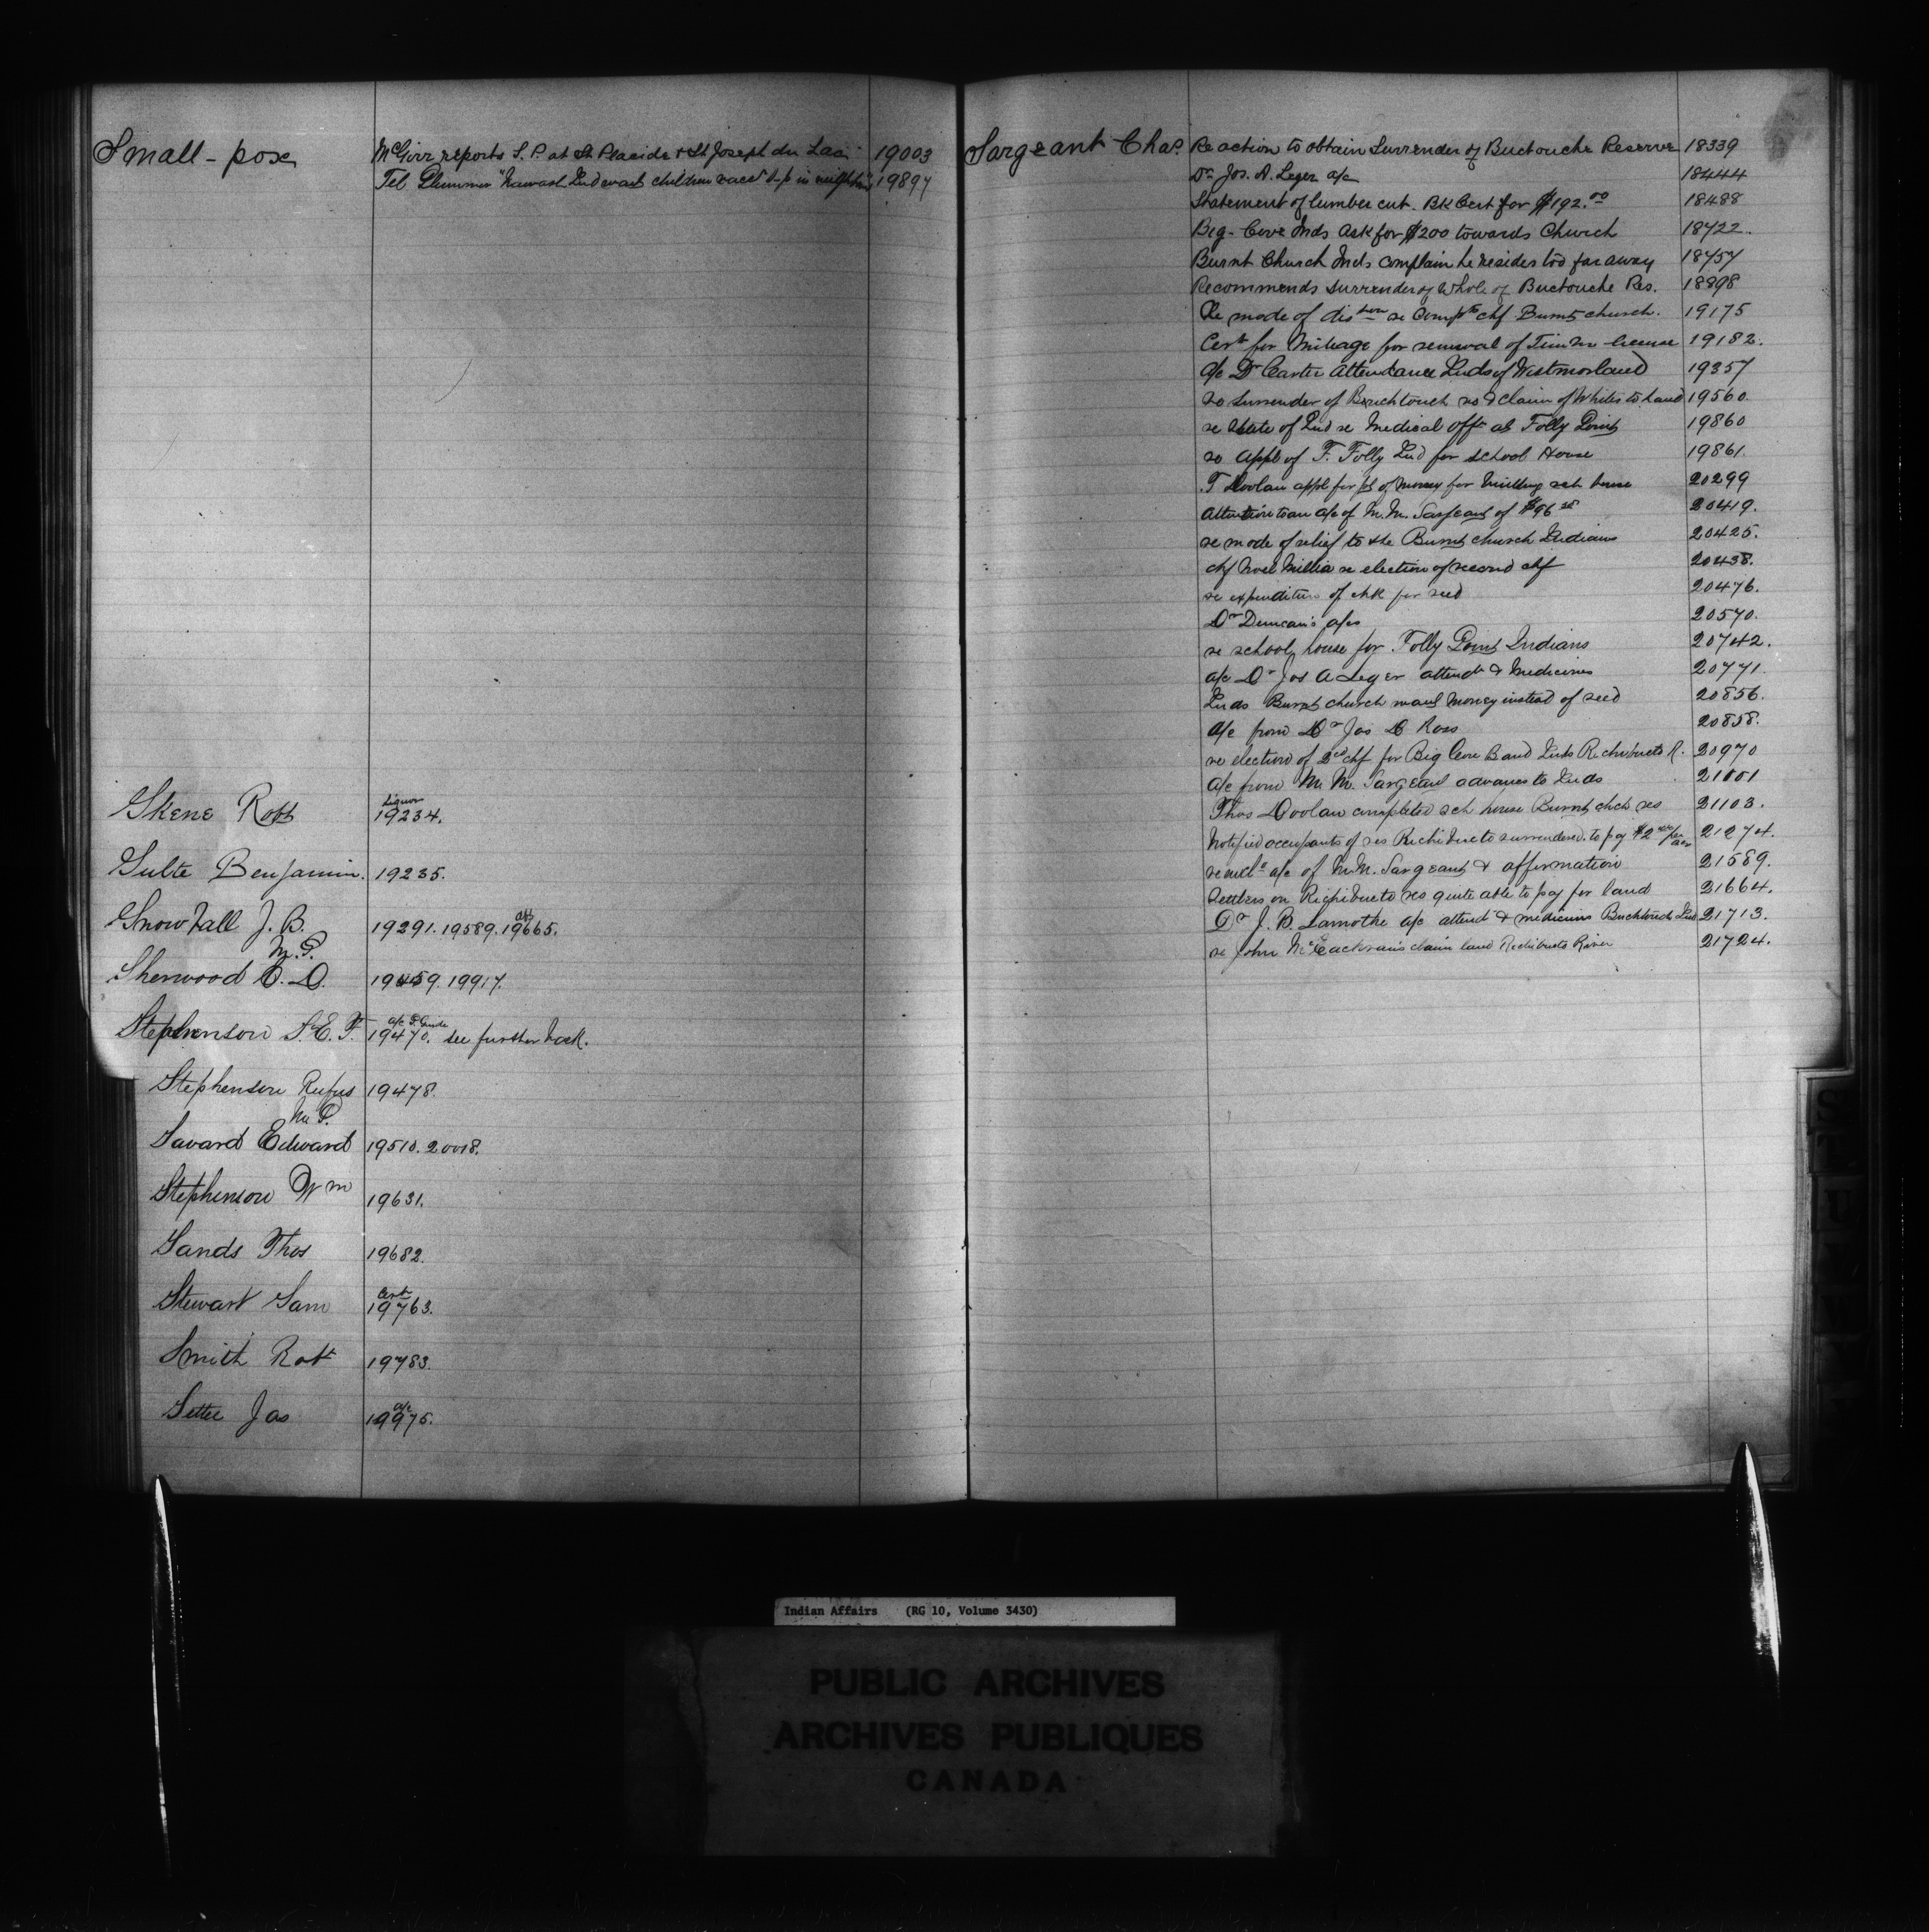 Small-pox McGirr reports S. P. at St Placide & St Joseph du Lac 19003
Tel Plummer "Nawash Ind want children vacc S-p in 19897
Skene Robt Liquor 19234.
Sulte Benjamin. 19235.
Snowball J. B. M.P. 19291. 19589. 19665.
Sherwood E. D. 19459. 19917.
Stephenson S. E. F. a/c F. Gunde 19470. see further back.
Stephenson Rufus M.P. 19478.
Savard Edward 19510. 20018.
Stephenson Wm 19631.
Sands Thos 19682.
Stewart Sam Cert 19763.
Smith Robt 19783.
Settee Jas a/c 19975.
Sargeant Chas. Re action to obtain Surrender of Buctouche Reserve 18339
Dr Jos. A. Leger a/c 18444
Statement of lumber cut. Bk Cert for $192.00 18488
Big-Cove Inds ask for $200 towards Church 18722.
Burnt Church Inds complain he resides too far away 18757
Recommends Surrender of Whole of Buctouche Res. 18898
Re mode of distion re Compts chf Burnt church. 19175
Cert for Mileage for renewal of Timber license 19182.
a/c Dr Carter Attendance Inds of Westmorland 19357
re Surrender of Buchtouch res & claim of Whites to Land 19560.
re State of Ind re Medical Offr at Folly Point 19860
re Appl of F. Folly Ind for school House 19861.
T Doolan appl for pt of money for building sch house 20299
Attention to an a/c of M. M. Sargeant of $96 20419.
re mode of relief to the Burnt church Indians 20425.
chf Noel Millia re election of second chf 20438.
re expenditure of chk for seed 20476.
Dr Duncan's a/cs 20570.
re school house for Folly Point Indians 20742.
a/c Dr Jos A Leger attendce & Medicines 20771.
Inds Burnt church want Money instead of seed 20856.
a/c from Dr Jas D Ross 20858.
re election of 2nd chf for Big Cove Band Inds Richibucto R. 20970
a/c from M. M. Sargeant advances to Inds 21001
Thos Doolan completed sch house Burnt chch res 21103.
Notified occupants of res Richibucto surrendered. to pay $2 per acre 21274.
re encld a/c of M. M. Sargeant & affirmation 21589.
Settlers on Richibucto res quite able to pay for land 21664.
Dr J. B. Lamothe a/c attend & medicines Buchtouch Ind 21713.
re John McEachran's claim land Richibucto River 21724.
Indian Affairs (RG 10, Volume 3430)
PUBLIC ARCHIVES
ARCHIVES PUBLIQUES
CANADA